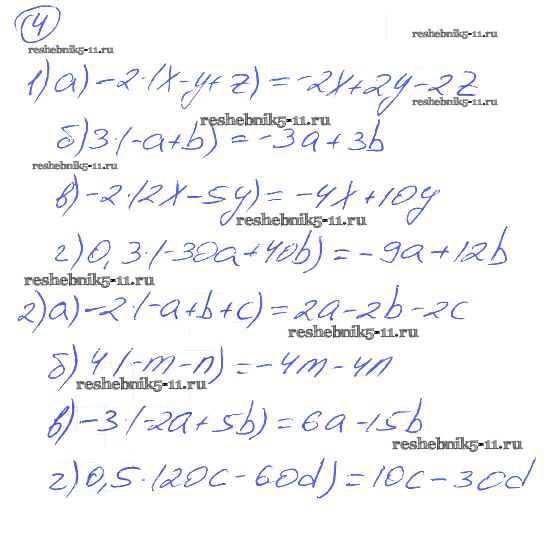 4
reshebnik5-11.ru
reshebnik5-11.ru
1) а) -2·(x-y+z) = -2x+2y-2z
reshebnik5-11.ru
reshebnik5-11.ru
б) 3·(-a+b) = -3a+3b
reshebnik5-11.ru
в) -2·(2x-5y) = -4x+10y
reshebnik5-11.ru
г) 0,3·(-30a+40b) = -9a+12b
reshebnik5-11.ru
2) а) -2·(-a+b+c) = 2a-2b-2c
reshebnik5-11.ru
б) 4(-m-n) = -4m-4n
reshebnik5-11.ru
в) -3·(-2a+5b) = 6a-15b
reshebnik5-11.ru
г) 0,5·(20c-60d) = 10c-30d